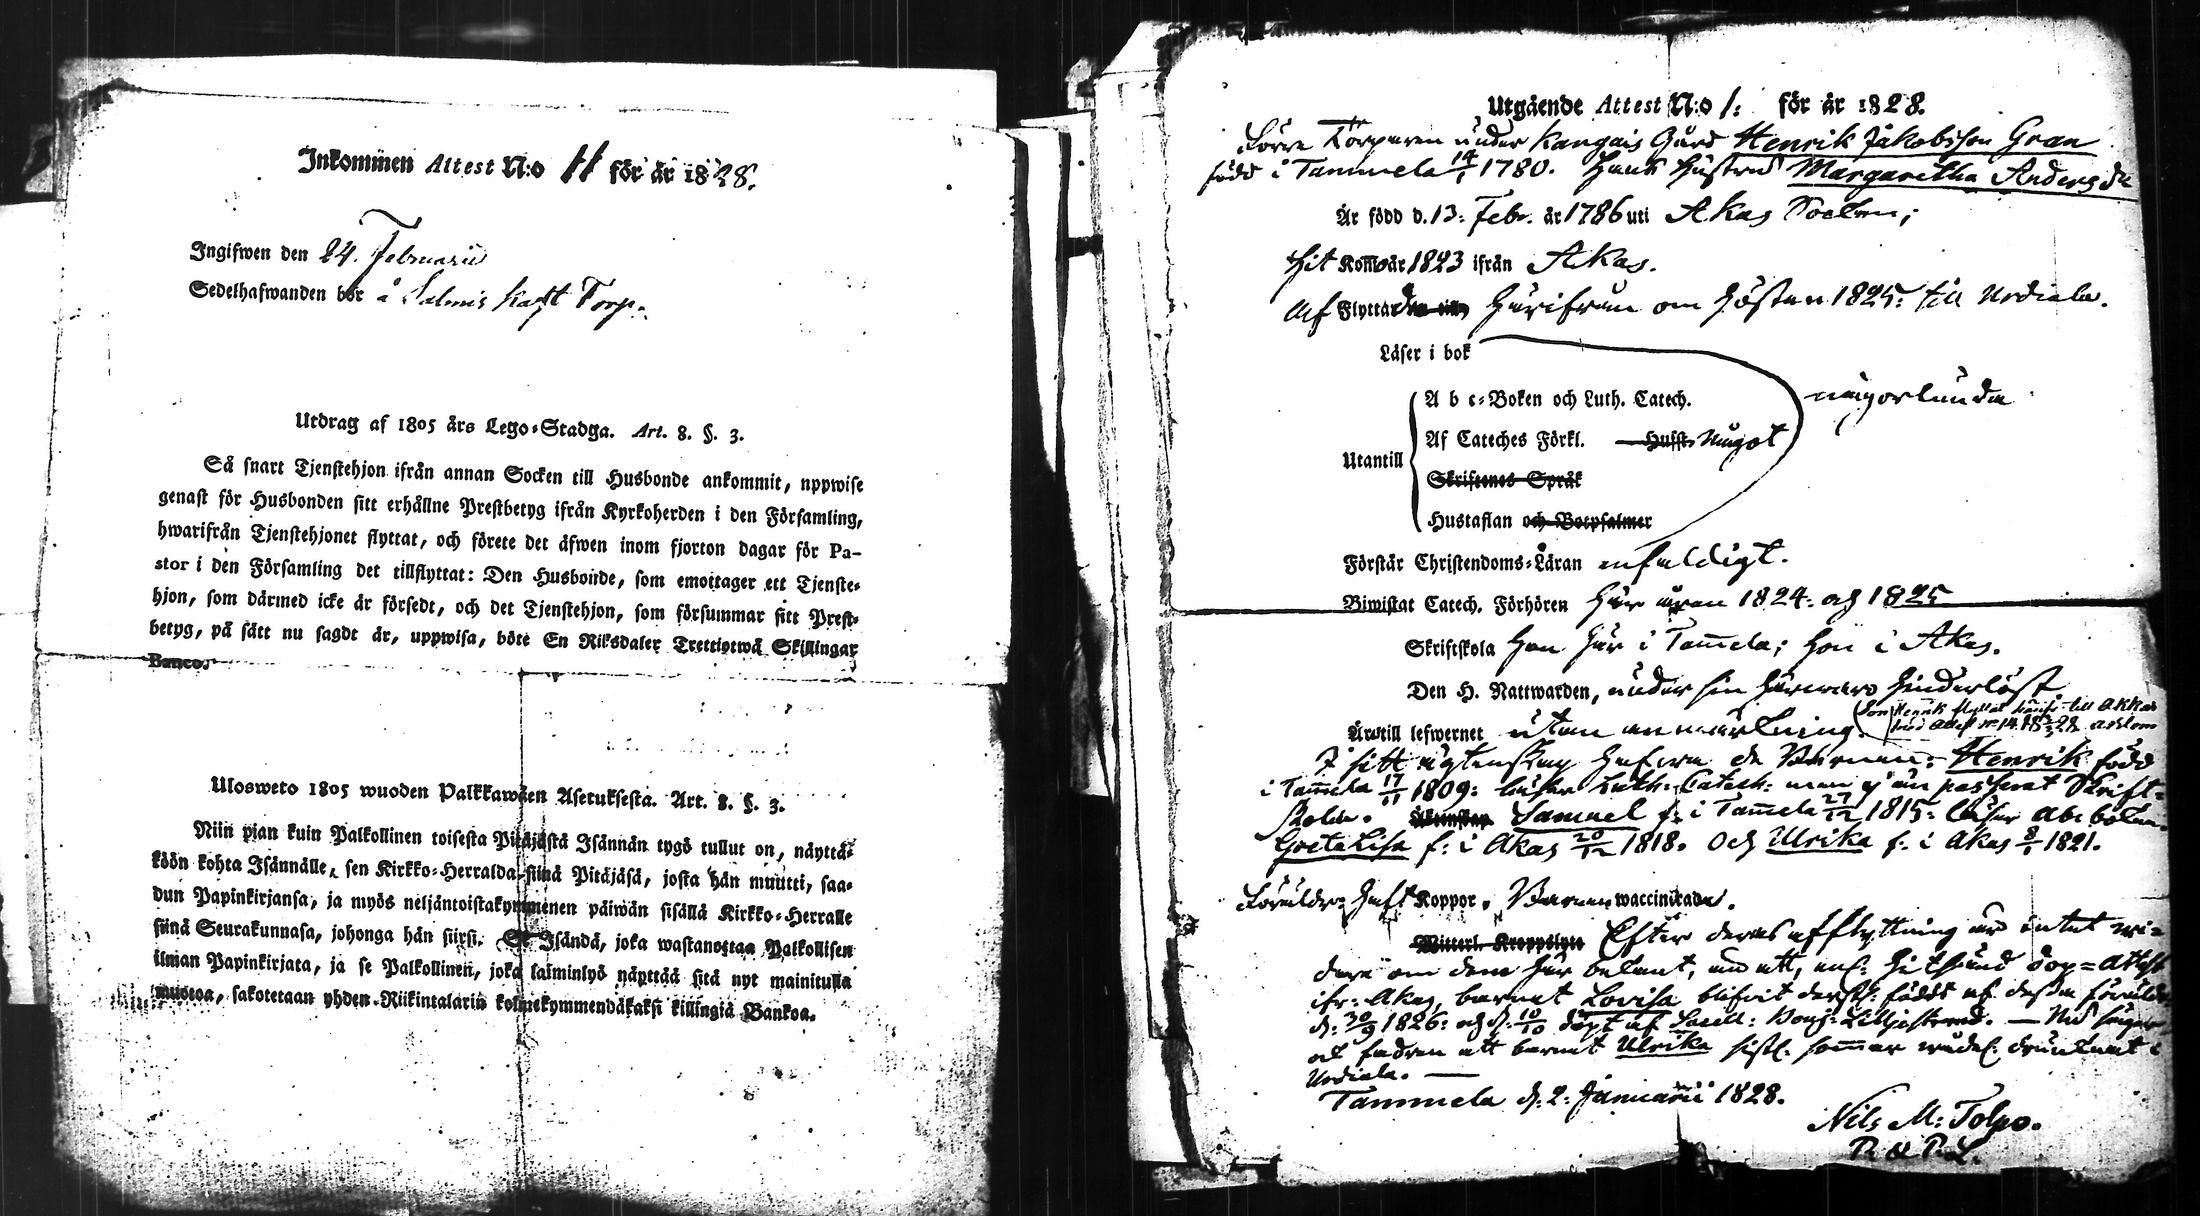 Inkommen Attest N:o 11 för år 1828.
Ingifwen den 24. Februarii
Sedelhafwanden bor å Salmis Torp.
Utdrag af 1805 års Lego-Stadga. Art. 8. §. 3.
Så snart Tjenstehjon ifrån annan Socken till Husbonde ankommit, uppwise
genast för Husbonden sitt erhållne Prestbetyg ifrån Kyrkoherden i den Församling,
hwarifrån Tjenstehjonet flyttat, och förete det äfwen inom fjorton dagar för Pa-
stor i den Församling det tillflyttat: Den Husbonde, som emottager ett Tjenste-
hjon, som därmed icke är försedt, och det Tjenstehjon, som försummar sitt Prest-
betyg, på sätt nu sagdt är, uppwisa, böte En Riksdaler Trettiotwå Skillingar
Banco.
Ulosweto 1805 wuoden Palkkawäen Asetuksesta. Art. 8. §. 3.
Niin pian kuin Palkollinen toisesta Pitäjästä Isännän tygö tullut on, näyttä-
köön kohta Isännälle, sen Kirkko-Herralda siinä Pitäjäsä, josta hän muutti, saa-
dun Papinkirjansa, ja myös neljäntoistakymmenen päiwän sisällä Kirkko-Herralle
siinä Seurakunnasa, johonga hän siirsi. Se Isändä, joka wastanottaa Palkollisen
ilman Papinkirjata, ja se Palkollinen, joka laiminlyö näyttää sitä nyt mainitulla
muotoa, sakotetaan yhden Riikintalarin kolmekymmendäkaksi killingiä Bankoa.
Utgående Attest N:o 1: för år 1828.
Förre Torparen under Kangais Gård Henrik Jakobsson Gran
född i Tammela 14/1 1780. Hans Hustru Margaretha Anders dr
Är född d. 13: Febr. år 1786 uti Akas Socken;
Hit Kom̄o år 1823 ifrån Akas.
Af Flyttade till härifrån om hösten 1825: till Urdiala.
Läser i bok
A b c-Boken och Luth. Catech. någorlunda
Af Cateches Förkl. Hufft. något
Utantill
Skriftenes Språk
Hustaflan och Botpsalmer
Förstår Christendoms-Läran enfaldigt.
Biwistat Catech. Förhören här åren 1824: och 1825
Skriftskola han här i Tam̄ela; hon i Akas.
Den H. Nattwarden, under sin härwaro hinderlöst
Är till lefwernet utan anmärkning. (Son Henrik flyttat härifr. till Akkas
med attest n:o 14
I sitt ägtenskap hafwa de Barnen: Henrik född
i Tam̄ela 17/11 1809: läser Luth: Catech: men ej än passerat Skrift=
skola. Äktenskap Samuel f: i Tam̄ela 1815: läser abc boken.
Greta Lisa f: i Akas 20/12 1818. och Ulrika f: i Akas 8/1 1821.
Föräldr. haft Koppor. Barnen waccinerade.
Witterl. Kroppslyte Efter deras afflyttning är intet wi=
dare om dem här bekant, än att, enl: hitsänd dop=attest
ifr: Akas, barnet Lovisa blifvit derst: födt af dessa föräldr:
d: 30/9 1826: och d: 10/10 döpt af Sacell: Lilljestrand. — Nu säger
ock fadren att barnet Ulrika sistl: som̄ar drunknat i
Urdiala. —
Tammela d: 2: Januarii 1828.
Nils M: Tolpo.
P. & P. L.